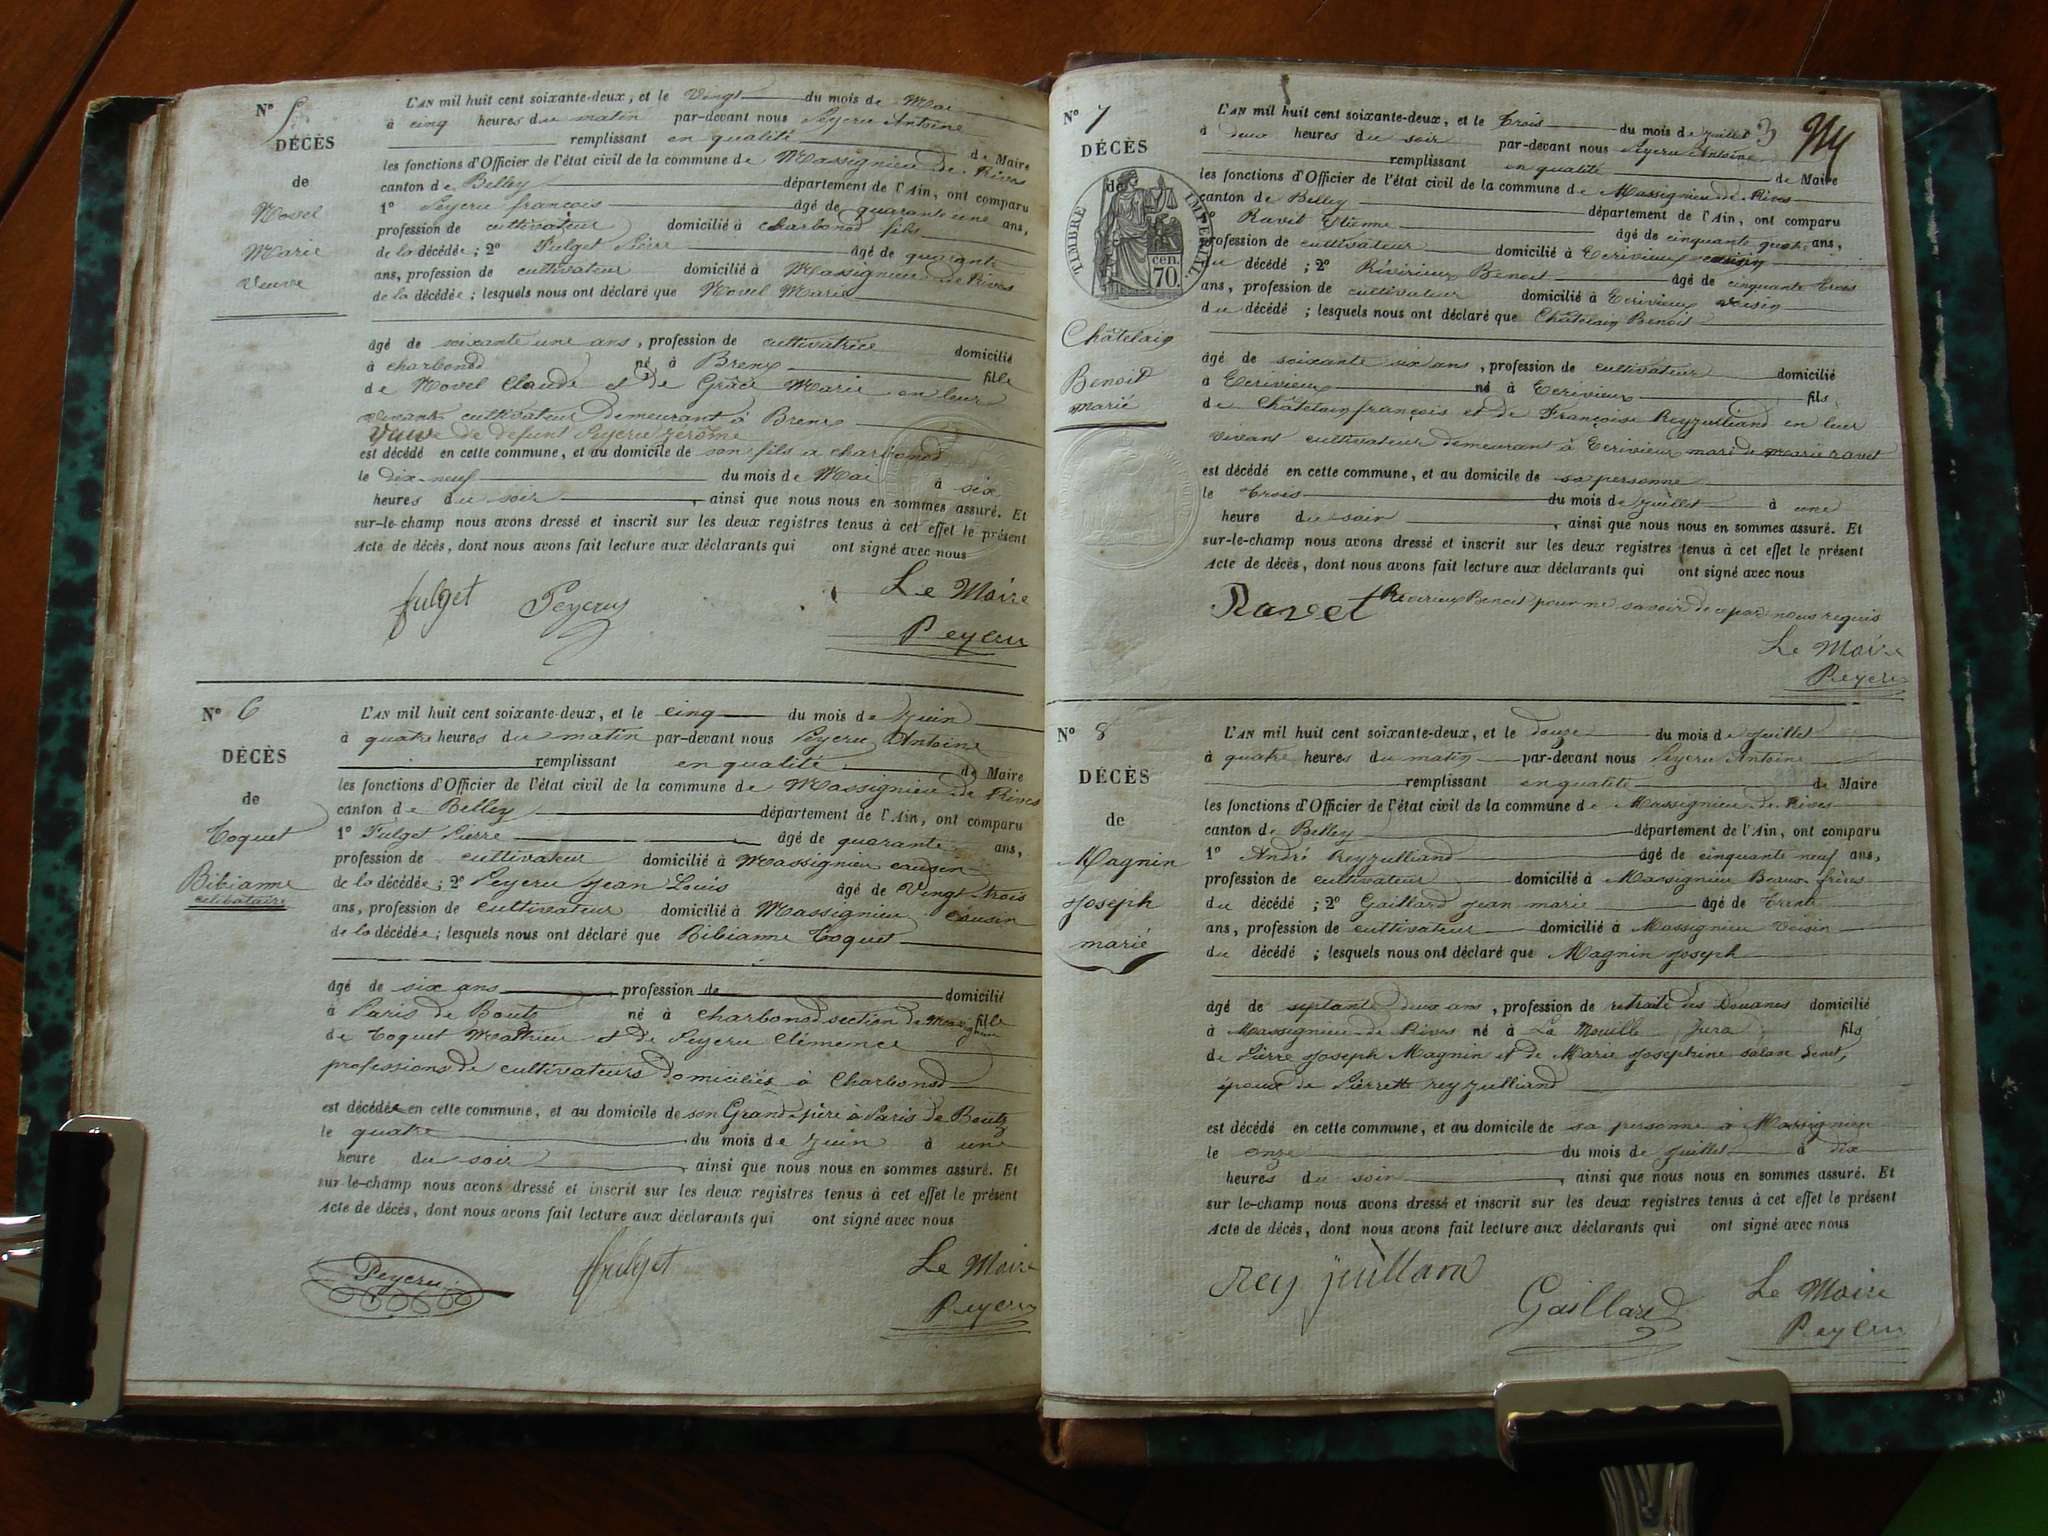 N° 5
DÉCÈS
de
Novel
Marie
Veuve
L'AN mil huit cent soixante-deux, et le Vingt du mois de Mai
à cinq heures du matin par-devant nous Peyeru Antoine
remplissant en qualité de Maire
les fonctions d'Officier de l'état civil de la commune de Massignieu de Rives
canton de Belley département de l'Ain, ont comparu
1° Peyeru françois âgé de quarante une ans,
profession de cultivateur domicilié à charbonod fils
de la décédée ; 2° Fulget Pierre âgé de quarante
ans, profession de cultivateur domicilié à Massignieu de Rives
de la décédée ; lesquels nous ont déclaré que Novel Marie
âgé de soixante une ans, profession de cultivatrice domicilié
à charbonod né à Brens fille
de Novel Claude et de Grâce Marie en leur
vivant cultivateur demeurant à Brens
Veuve de defunt Peyeru Jérôme
est décédé en cette commune, et au domicile de son fils a charbonod
le dix-neuf du mois de Mai à six
heures du soir, ainsi que nous nous en sommes assuré. Et
sur-le-champ nous avons dressé et inscrit sur les deux registres tenus à cet effet le présent
Acte de décès, dont nous avons fait lecture aux déclarants qui ont signé avec nous
fulget Peyeru Le Maire
Peyeru
N° 6
DÉCÈS
de
Toquet
Bibianne
célibataire
L'AN mil huit cent soixante-deux, et le cinq du mois de Juin
à quatre heures du matin par-devant nous Peyeru Antoine
remplissant en qualité de Maire
les fonctions d'Officier de l'état civil de la commune de Massignieu de Rives
canton de Belley département de l'Ain, ont comparu
1° Fulget Pierre âgé de quarante ans,
profession de cultivateur domicilié à Massignieu cousin
de la décédée ; 2° Peyeru Jean Louis âgé de Vingt trois
ans, profession de cultivateur domicilié à Massignieu cousin
de la décédée ; lesquels nous ont déclaré que Bibianne Toquet
âgé de six ans, profession de domicilié
à Paris de Boutz né à charbonod section de Massignieu fille
de Toquet Mathieu et de Peyeru Clémence
professions de cultivateurs domiciliés à Charbonod
est décédée en cette commune, et au domicile de son Grand-père à Paris de Boutz
le quatre du mois de Juin à une
heure du soir, ainsi que nous nous en sommes assuré. Et
sur le-champ nous avons dressé et inscrit sur les deux registres tenus à cet effet le présent
Acte de décès, dont nous avons fait lecture aux déclarants qui ont signé avec nous
Peyeru fulget Le Maire
Peyeru
N° 7
DÉCÈS
de
TIMBRE IMPÉRIAL
70 cen.
Châtelain
Benoit
marié
L'AN mil huit cent soixante-deux, et le trois du mois de Juillet
à deux heures du soir par-devant nous Peyeru Antoine
remplissant en qualité de Maire
les fonctions d'Officier de l'état civil de la commune de Massignieu de Rives
canton de Belley département de l'Ain, ont comparu
1° Ravet Etienne âgé de cinquante quatre ans,
profession de cultivateur domicilié à Ecrivieux
du décédé ; 2° Révérieux Benoit âgé de cinquante trois
ans, profession de cultivateur domicilié à Ecrivieux voisin
du décédé ; lesquels nous ont déclaré que Châtelain Benoit
âgé de soixante six ans, profession de cultivateur domicilié
à Ecrivieux né à Ecrivieux fils
de Châtelain françois et de Françoise Reyjulliand en leur
vivant cultivateur demeurant à Ecrivieux mari de marie ravet
est décédé en cette commune, et au domicile de sa personne
le trois du mois de Juillet à une
heure du soir, ainsi que nous nous en sommes assuré. Et
sur-le-champ nous avons dressé et inscrit sur les deux registres tenus à cet effet le présent
Acte de décès, dont nous avons fait lecture aux déclarants qui ont signé avec nous
Ravet Revérieux Benoit pour ne savoir de ce par nous requis
Le Maire
Peyeru
N° 8
DÉCÈS
de
Magnin
Joseph
marié
L'AN mil huit cent soixante-deux, et le douze du mois de Juillet
à quatre heures du matin par-devant nous Peyeru Antoine
remplissant en qualité de Maire
les fonctions d'Officier de l'état civil de la commune de Massignieu de Rives
canton de Belley département de l'Ain, ont comparu
1° André Reyjulliand âgé de cinquante neuf ans,
profession de cultivateur domicilié à Massignieu Beaux frères
du décédé ; 2° Gaillard Jean marie âgé de trente
ans, profession de cultivateur domicilié à Massignieu Voisin
du décédé ; lesquels nous ont déclaré que Magnin Joseph
âgé de septante deux ans, profession de retraité des Douanes domicilié
à Massignieu de Rives né à La Mouille Jura fils
de Pierre Joseph Magnin et de Marie Josephine
époux de Pierrette reyjulliand
est décédé en cette commune, et au domicile de sa personne à Massignieu
le onze du mois de Juillet à dix
heures du soir, ainsi que nous nous en sommes assuré. Et
sur le-champ nous avons dressé et inscrit sur les deux registres tenus à cet effet le présent
Acte de décès, dont nous avons fait lecture aux déclarants qui ont signé avec nous
rey juilland Gaillard Le Maire
Peyeru